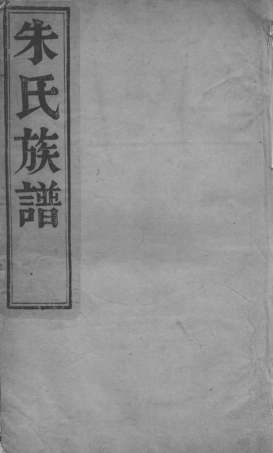 朱氏族譜